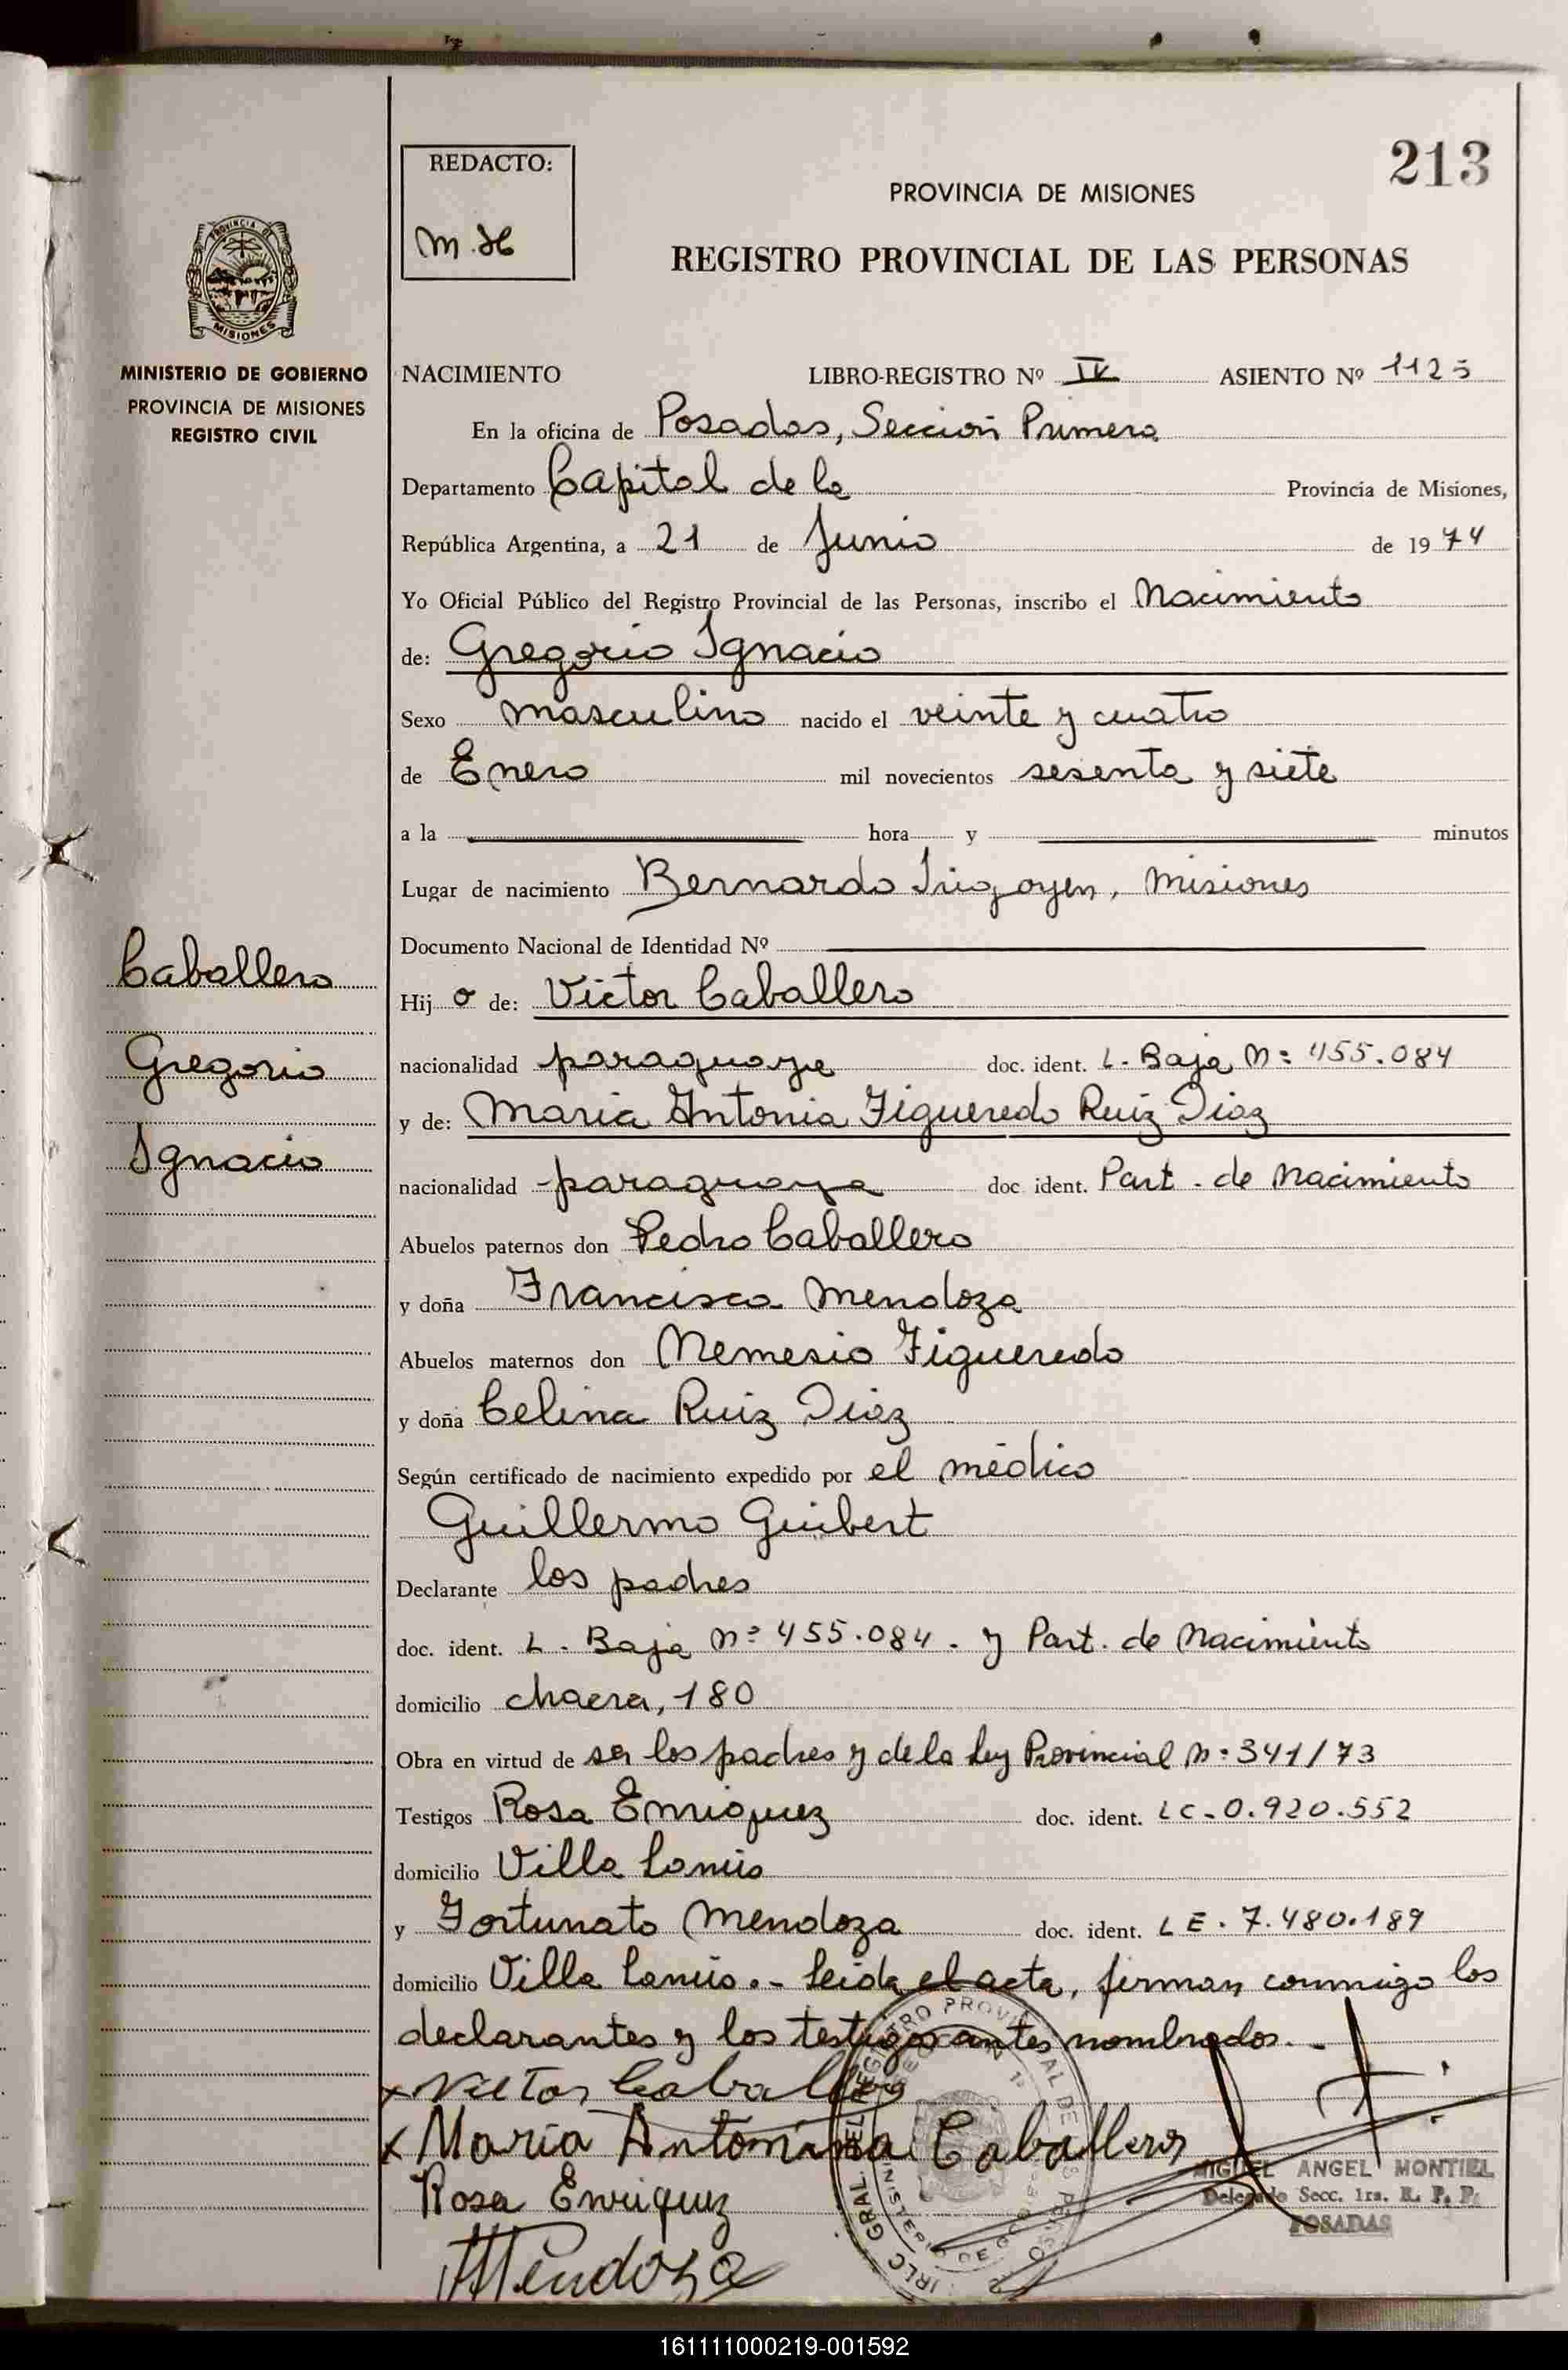 213
REDACTO:
M.H
PROVINCIA DE MISIONES
REGISTRO PROVINCIAL DE LAS PERSONAS
PROVINCIA DE
MISIONES
MINISTERIO DE GOBIERNO
PROVINCIA DE MISIONES
REGISTRO CIVIL
NACIMIENTO LIBRO-REGISTRO Nº IV ASIENTO Nº 1125
En la oficina de Posadas, Sección Primera
Departamento Capital de la Provincia de Misiones,
República Argentina, a 21 de Junio de 1974
Yo Oficial Público del Registro Provincial de las Personas, inscribo el Nacimiento
de: Gregorio Ignacio
Sexo masculino nacido el veinte y cuatro
de Enero mil novecientos sesenta y siete
a la hora y minutos
Lugar de nacimiento Bernardo Irigoyen, Misiones
Documento Nacional de Identidad Nº
Caballero
Gregorio
Ignacio
Hij o de: Victor Caballero
nacionalidad paraguaya doc. ident. L. Baja Nº 455.084
y de: Maria Antonia Figueredo Ruiz Diaz
nacionalidad paraguaya doc. ident. Part. de Nacimiento
Abuelos paternos don Pedro Caballero
y doña Francisca Mendoza
Abuelos maternos don Nemesio Figueredo
y doña Celina Ruiz Diaz
Según certificado de nacimiento expedido por el médico
Guillermo Guibert
Declarante los padres
doc. ident. L. Baja Nº 455.084. y Part. de Nacimiento
domicilio chacra, 180
Obra en virtud de ser los padres y de la Ley Provincial Nº 341/73
Testigos Rosa Enriquez doc. ident. LC-0.920.552
domicilio Villa Lanús
y Fortunato Mendoza doc. ident. LE. 7.480.189
domicilio Villa Lanús.- Leida el acta, firman conmigo los
declarantes y los testigos antes nombrados.-
x Victor Caballero
x María Antonina Caballero
Rosa Enriquez
Mendoza
MIGUEL ANGEL MONTIEL
Delegado Secc. 1ra. R. P. P.
POSADAS
161111000219-001592